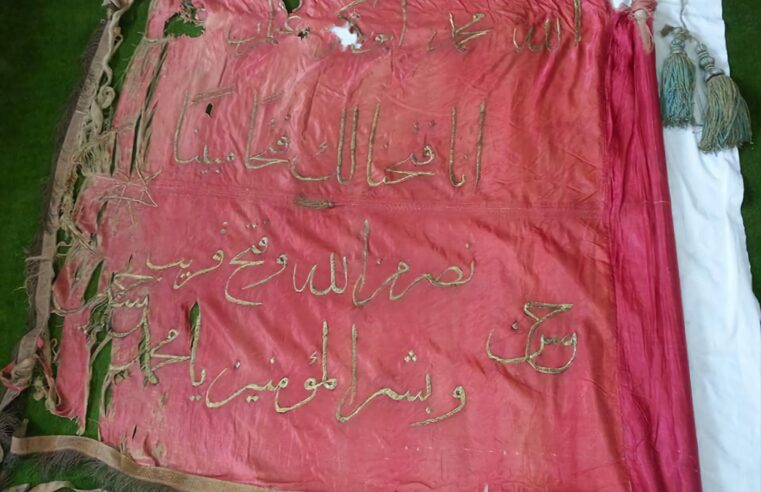 الله محمد ابوبكر
انا فتحنا لك فتحا مبينا
نصر من الله وفتح قريب
حسن
وبشر المؤمنين يا محمد